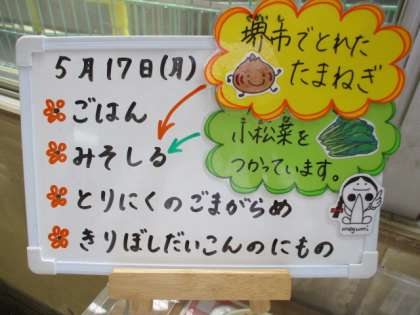 5月17日(月)
ごはん
みそしる
とりにくのごまがらめ
きりぼしだいこんのにもの
堺市でとれた
たまねぎ
小松菜を
つかっています。
megumi